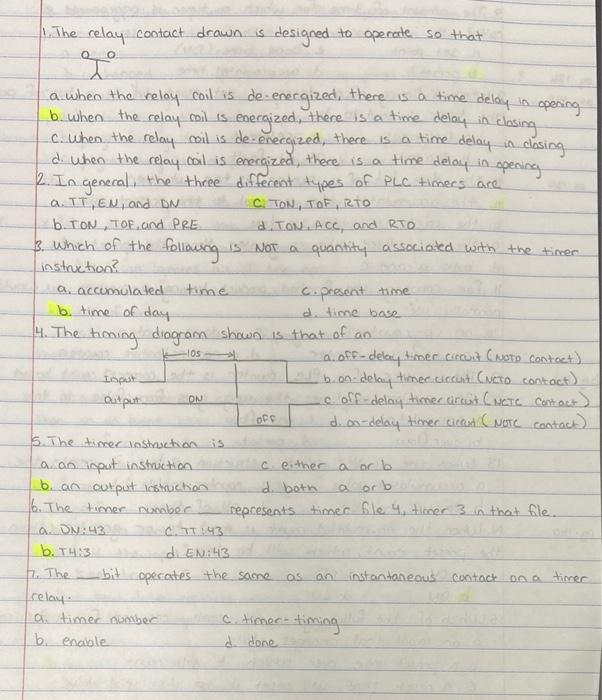 1. The relay contact drawn is designed to operate so that
a. when the relay coil is de-energized, there is a time delay in opening
b. when the relay coil is energized, there is a time delay in closing
c. when the relay coil is de-energized, there is a time delay in closing
d. when the relay coil is energized, there is a time delay in opening
2. In general, the three different types of PLC timers are
a. TT, EN, and DN c. TON, TOF, RTO
b. TON, TOF, and PRE d. TON, ACC, and RTO
3. Which of the following is NOT a quantity associated with the timer
instruction?
a. accumulated time c. present time
b. time of day d. time base
4. The timing diagram shown is that of an
10s a. off-delay timer circuit (NOTO contact)
Input b. on-delay timer circuit (NCTO contact)
Output ON c. off-delay timer circuit (NCTC contact)
OFF d. on-delay timer circuit (NOTC contact)
5. The timer instruction is
a. an input instruction c. either a or b
b. an output instruction d. both a or b
6. The timer number represents timer file 4, timer 3 in that file.
a. DN:43 c. TT:43
b. T4:3 d. EN:43
7. The __ bit operates the same as an instantaneous contact on a timer
relay.
a. timer number c. timer-timing
b. enable d. done